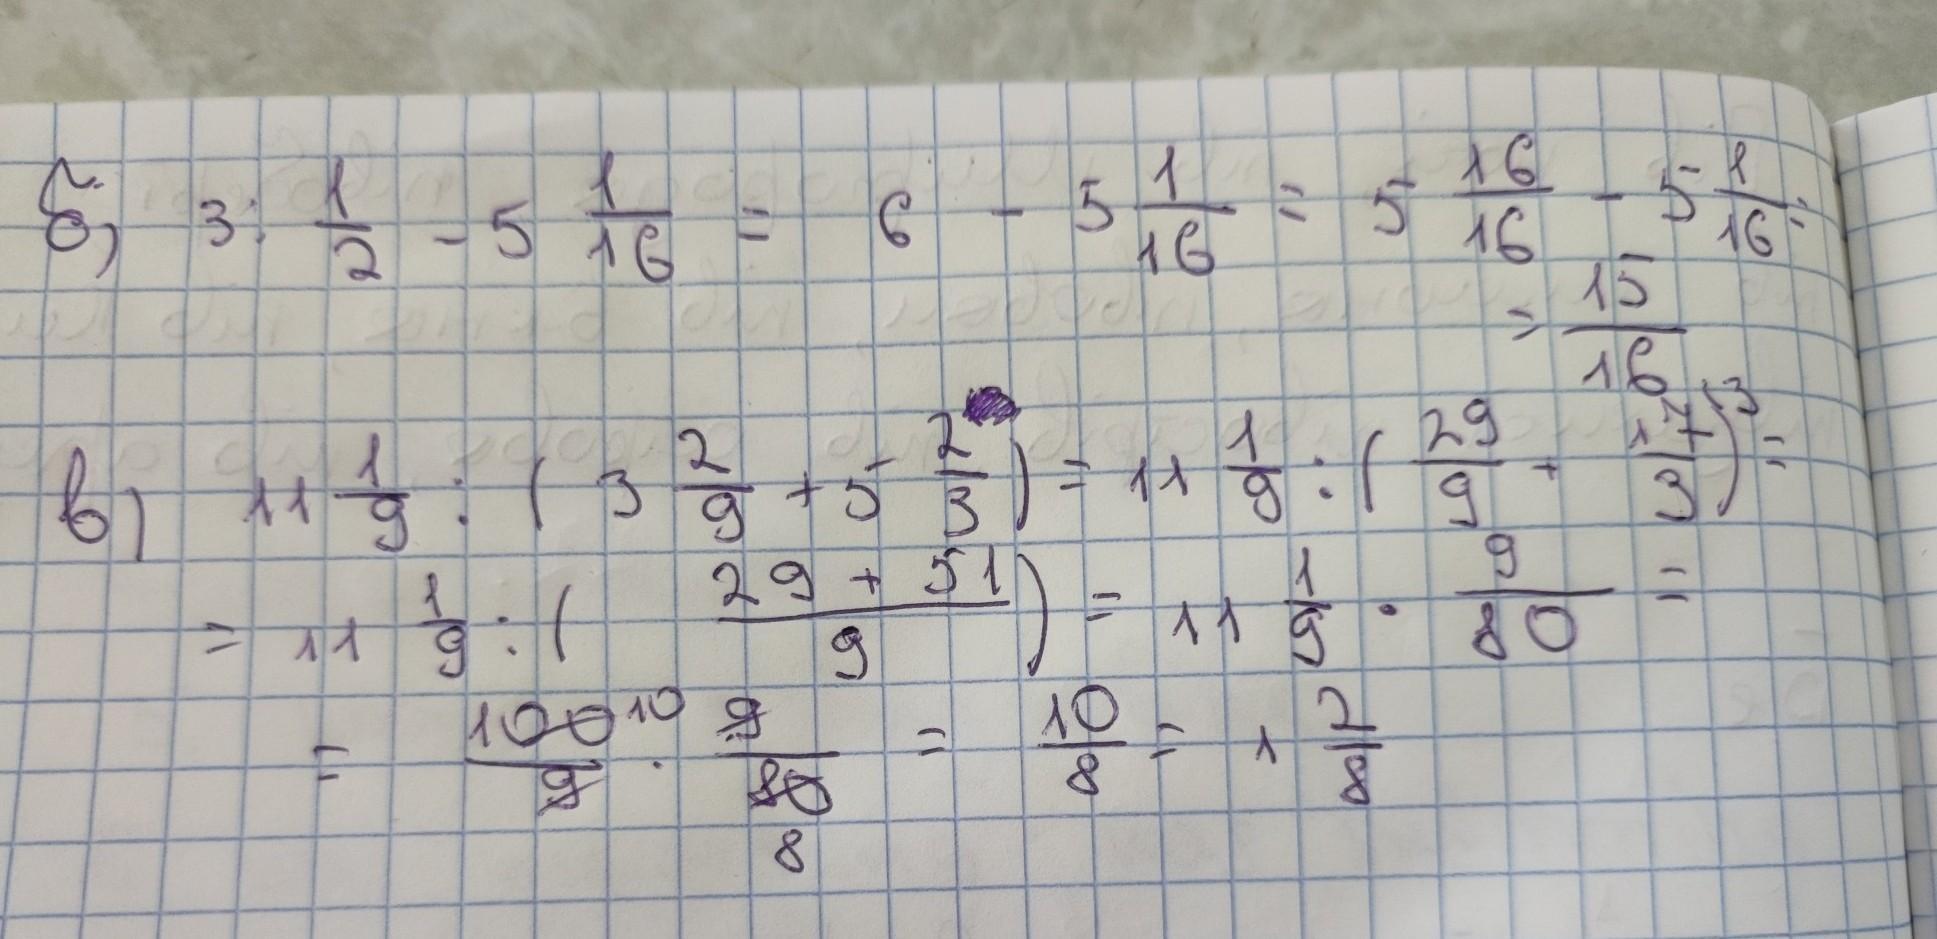 б) 3 : 1/2 - 5 1/16 = 6 - 5 1/16 = 5 16/16 - 5 1/16 =
= 15/16
в) 11 1/9 : ( 3 2/9 + 5 2/3 ) = 11 1/9 : ( 29/9 + 17/3 ) 3 =
= 11 1/9 : ( 29 + 51 / 9 ) = 11 1/9 · 9/80 =
= 100/9 10 · 9/80 8 = 10/8 = 1 2/8